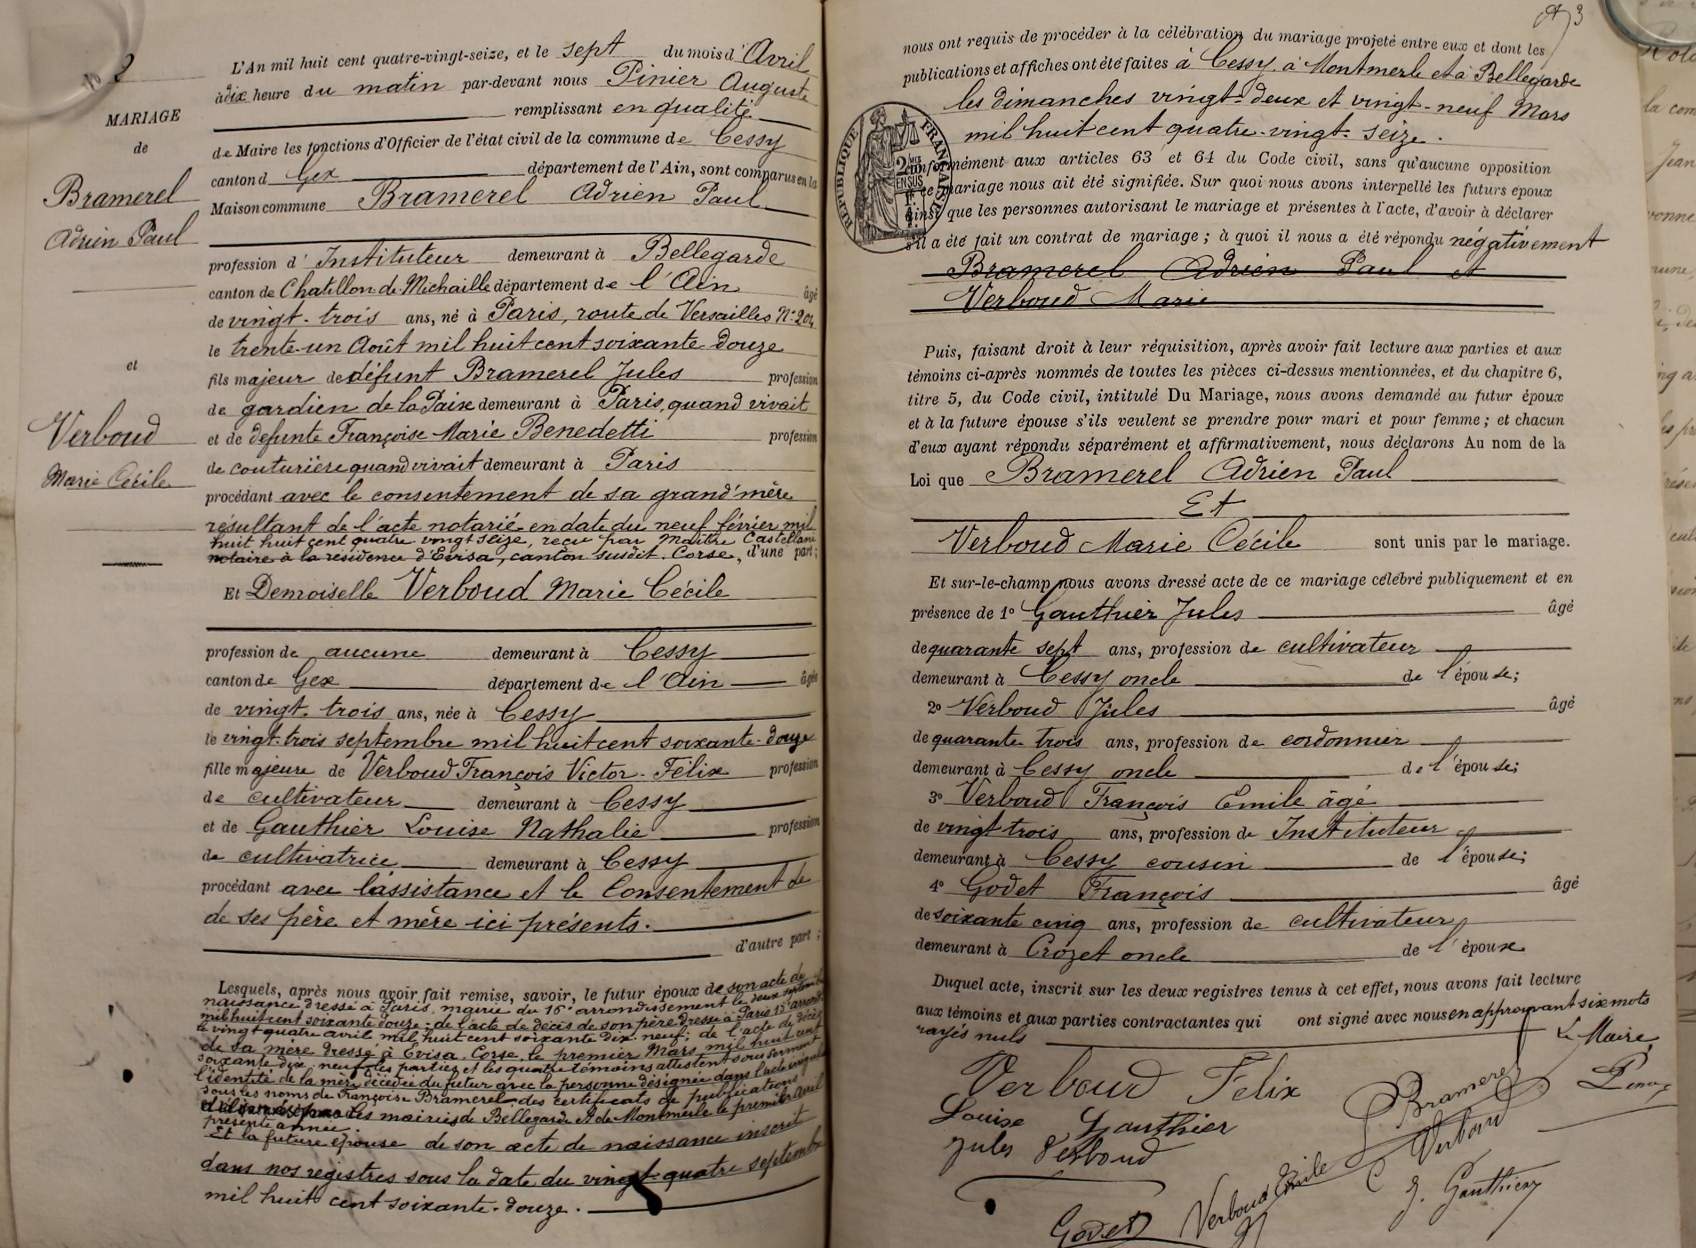 No 2
MARIAGE
de
Bramerel
Adrien Paul
et
Verboud
Marie Cécile
L'An mil huit cent quatre-vingt-seize, et le sept du mois d'Avril
à dix heure du matin par-devant nous Pinier Auguste
remplissant en qualité
de Maire les fonctions d'Officier de l'état civil de la commune de Cessy
canton d Gex département de l'Ain, sont comparus en la
Maison commune Bramerel Adrien Paul
profession d'Instituteur demeurant à Bellegarde
canton de Chatillon de Michaille département de l'Ain âgé
de vingt-trois ans, né à Paris, route de Versailles No 204
le trente-un Août mil huit cent soixante-douze
fils majeur de défunt Bramerel Jules profession
de gardien de la Paix demeurant à Paris, quand vivait
et de defunte Françoise-Marie Benedetti profession
de couturière quand vivait demeurant à Paris
procédant avec le consentement de sa grand'mère
résultant de l'acte notarié en date du neuf février mil
huit huit cent quatre vingt seize, reçu par Maître Castellani
notaire à la résidence d'Evisa, canton susdit, Corse, d'une part;
Et Demoiselle Verboud Marie Cécile
profession de aucune demeurant à Cessy
canton de Gex département de l'Ain âgée
de vingt-trois ans, née à Cessy
le vingt-trois septembre mil huit cent soixante-douze
fille majeure de Verboud François Victor-Félix profession
de cultivateur demeurant à Cessy
et de Gauthier Louise Nathalie profession
de cultivatrice demeurant à Cessy
procédant avec l'assistance et le Consentement de
de ses père et mère ici présents.
d'autre part;
Lesquels, après nous avoir fait remise, savoir, le futur époux de son acte de
naissance dressé à Paris, mairie du 16e arrondissement le deux septembre
mil huit cent soixante douze; de l'acte de décès de son père dressé à Paris
le vingt quatre avril mil huit cent soixante dix neuf; de l'acte de décès
de sa mère dressé à Evisa, Corse, le premier Mars mil huit cent
soixante dix neuf les parties et les quatre témoins attestent sous serment
l'identité de la mère décédée du futur avec la personne désignée dans l'acte
sous les noms de Françoise Bramerel des certificats de publications
les mairies de Bellegarde et de Montmerle le premier avril
présente année.
Et la future épouse de son acte de naissance inscrit
dans nos registres sous la date du vingt-quatre septembre
mil huit cent soixante-douze.
3
nous ont requis de procéder à la célébration du mariage projeté entre eux et dont les
publications et affiches ont été faites à Cessy, à Montmerle et à Bellegarde
les dimanches vingt-deux et vingt-neuf Mars
mil huit cent quatre-vingt-seize.
RÉPUBLIQUE FRANÇAISE
conformément aux articles 63 et 64 du Code civil, sans qu'aucune opposition
à ce mariage nous ait été signifiée. Sur quoi nous avons interpellé les futurs époux
ainsi que les personnes autorisant le mariage et présentes à l'acte, d'avoir à déclarer
s'il a été fait un contrat de mariage; à quoi il nous a été répondu négativement
Bramerel Adrien Paul et
Verboud Marie
Puis, faisant droit à leur réquisition, après avoir fait lecture aux parties et aux
témoins ci-après nommés de toutes les pièces ci-dessus mentionnées, et du chapitre 6,
titre 5, du Code civil, intitulé Du Mariage, nous avons demandé au futur époux
et à la future épouse s'ils veulent se prendre pour mari et pour femme; et chacun
d'eux ayant répondu séparément et affirmativement, nous déclarons Au nom de la
Loi que Bramerel Adrien Paul
Et
Verboud Marie Cécile sont unis par le mariage.
Et sur-le-champ nous avons dressé acte de ce mariage célébré publiquement et en
présence de 1o Gauthier Jules âgé
de quarante sept ans, profession de cultivateur
demeurant à Cessy oncle de l'épouse;
2o Verboud Jules âgé
de quarante trois ans, profession de cordonnier
demeurant à Cessy oncle de l'épouse;
3o Verboud François Emile âgé
de vingt trois ans, profession de Instituteur
demeurant à Cessy cousin de l'épouse;
4o Godet François âgé
de soixante cinq ans, profession de cultivateur
demeurant à Crozet oncle de l'épouse
Duquel acte, inscrit sur les deux registres tenus à cet effet, nous avons fait lecture
aux témoins et aux parties contractantes qui ont signé avec nous en approuvant six mots
rayés nuls
Le Maire,
Verboud Felix
Bramerel
Pinier
Louise Gauthier
C Verboud
Jules Verboud
Verboud Emile
J. Gauthier
Godet